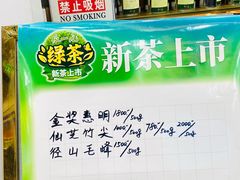 禁止吸烟
NO SMOKING
绿茶
新茶上市
新茶上市
金奖惠明 1800/500g
仙芝竹尖 1000/500g 780/500g 2000/500g
径山毛峰 1500/500g